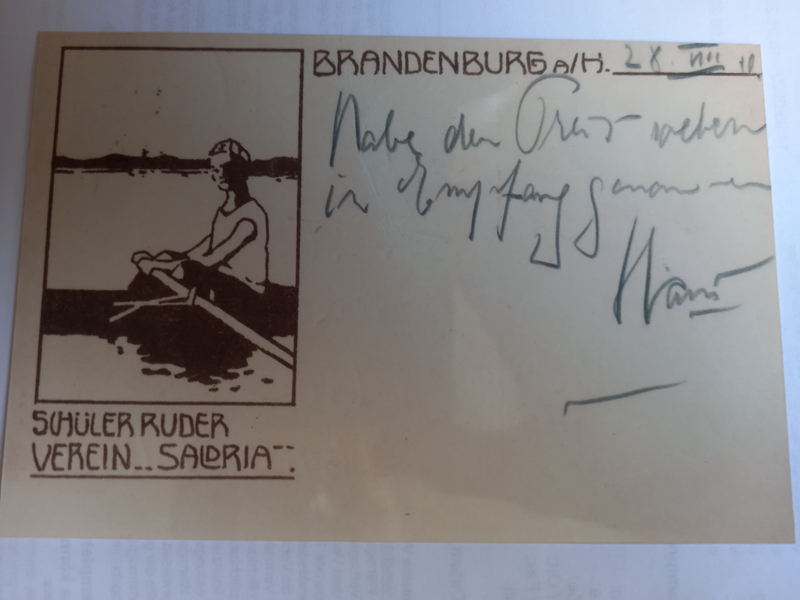 BRANDENBURG A/H. 28. VIII 11.
Habe den Preis neben
in Empfang genommen
Hans
SCHÜLER RUDER
VEREIN „SALDRIA“.